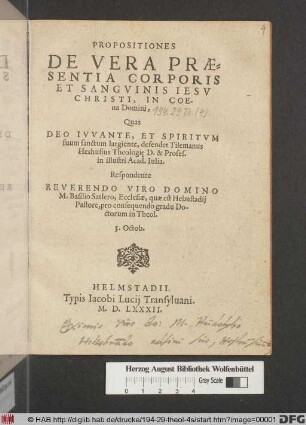 PROPOSITIONES
DE VERA PRÆ-
SENTIA CORPORIS
ET SANGVINIS IESV
CHRISTI, IN COE-
na Domini,
Quas
DEO IVVANTE, ET SPIRITVM
suum sanctum largiente, defendet Tilemanus
Heshusius Theologiæ D. & Profess.
in illustri Acad. Iulia.
Respondente
REVERENDO VIRO DOMINO
M. Basilio Satlero, Ecclesiæ, quæ est Helmstadij
Pastore, pro consequendo gradu Do-
ctorum in Theol.
5. Octob.
HELMSTADII.
Typis Iacobi Lucij Transyluani.
M. D. LXXXII.
Herzog August Bibliothek Wolfenbüttel
Gray Scale
© HAB http://diglib.hab.de/drucke/194-29-theol-4s/start.htm?image=00001
DFG